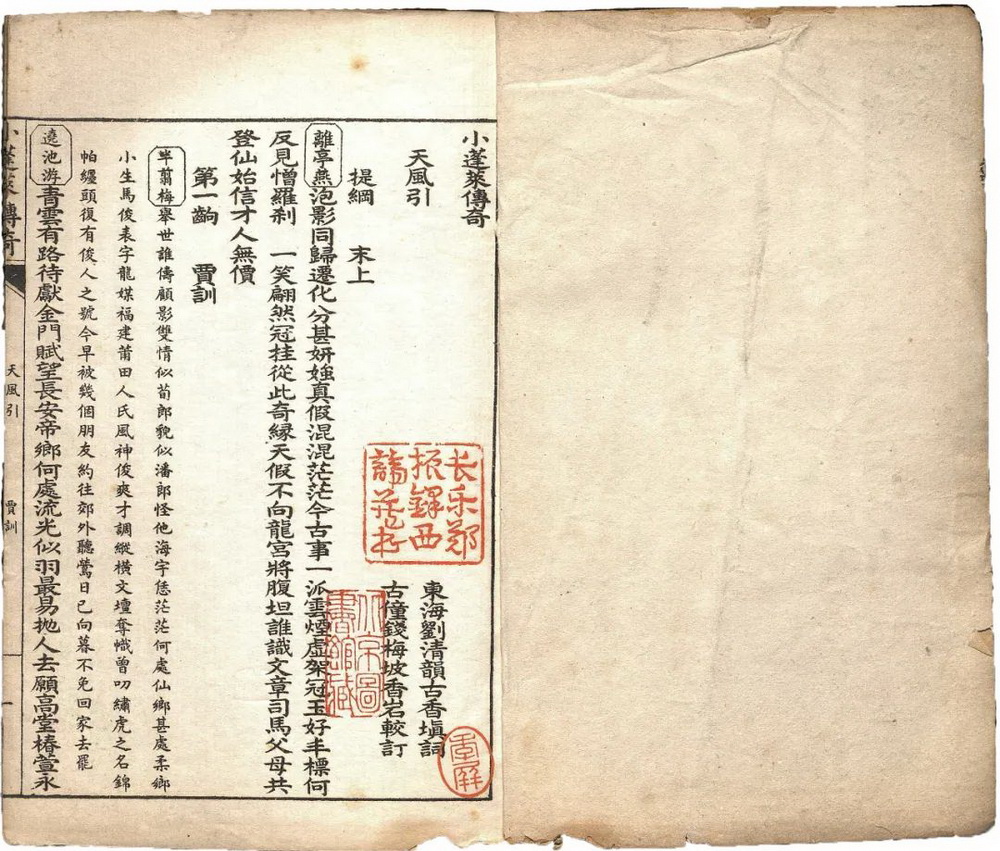 小蓬萊傳奇
天風引
東海劉清韻古香塡詞
古僮錢梅坡香岩較訂
提綱　末上
離亭燕 泡影同歸遷化分甚妍媸真假混混茫茫今古事一派雲煙虛架冠玉好丰標何
反見憎羅刹　一笑翩然冠挂從此奇緣天假不向龍宮將腹坦誰識文章司馬父母共
登仙始信才人無價
第一齣　賈訓
半翦梅 舉世誰儔顧影雙情似荀郎貌似潘郎怪他海宇恁茫茫何處仙鄉甚處柔鄉
小生馬俊表字龍媒福建莆田人氏風神俊爽才調縱橫文壇奪幟曾叨繡虎之名錦
帕纏頭復有俊人之號今早被幾個朋友約往郊外聽鶯日已向暮不免回家去罷
遶池游 青雲有路待獻金門賦望長安帝鄉何處流光似羽最易拋人去願高堂椿萱永
小蓬萊傳奇
天風引
賈訓
一
长乐郑
振铎西
諦藏书
北京圖
書館藏